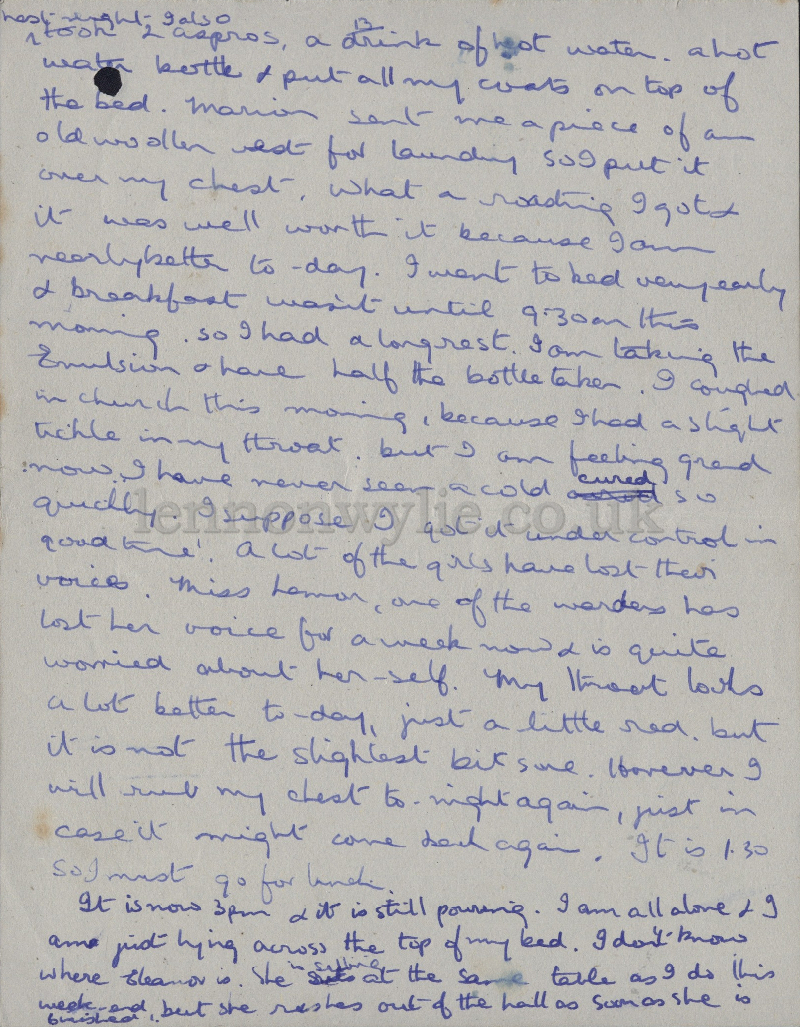 Last night I also
took 2 aspros, a drink of hot water. a hot
water bottle & put all my coats on top of
the bed. Marion sent me a piece of an
old woollen vest for laundry so I put it
over my chest. What a roasting I got &
it was well worth it because I am
nearly better to-day. I went to bed very early
& breakfast wasn't until 9.30 am this
morning. so I had a long rest. I am taking the
Emulsion & have half the bottle taken. I coughed
in church this morning, because I had a slight
tickle in my throat. but I am feeling grand
now. I have never seen a cold cured so
quickly. I suppose I got it under control in
good time! A lot of the girls have lost their
voices. Miss Lamor, one of the wardens has
lost her voice for a week now & is quite
worried about her-self. My throat looks
a lot better to-day, just a little red. but
it is not the slightest bit sore. However I
will rub my chest to-night again, just in
case it might come back again. It is 1.30
so I must go for lunch.
It is now 3pm & it is still pouring. I am all alone & I
am just lying across the top of my bed. I don't know
where Eleanor is. She is sitting at the same table as I do this
week-end, but she rushes out of the hall as soon as she is
finished.
lennonwylie.co.uk